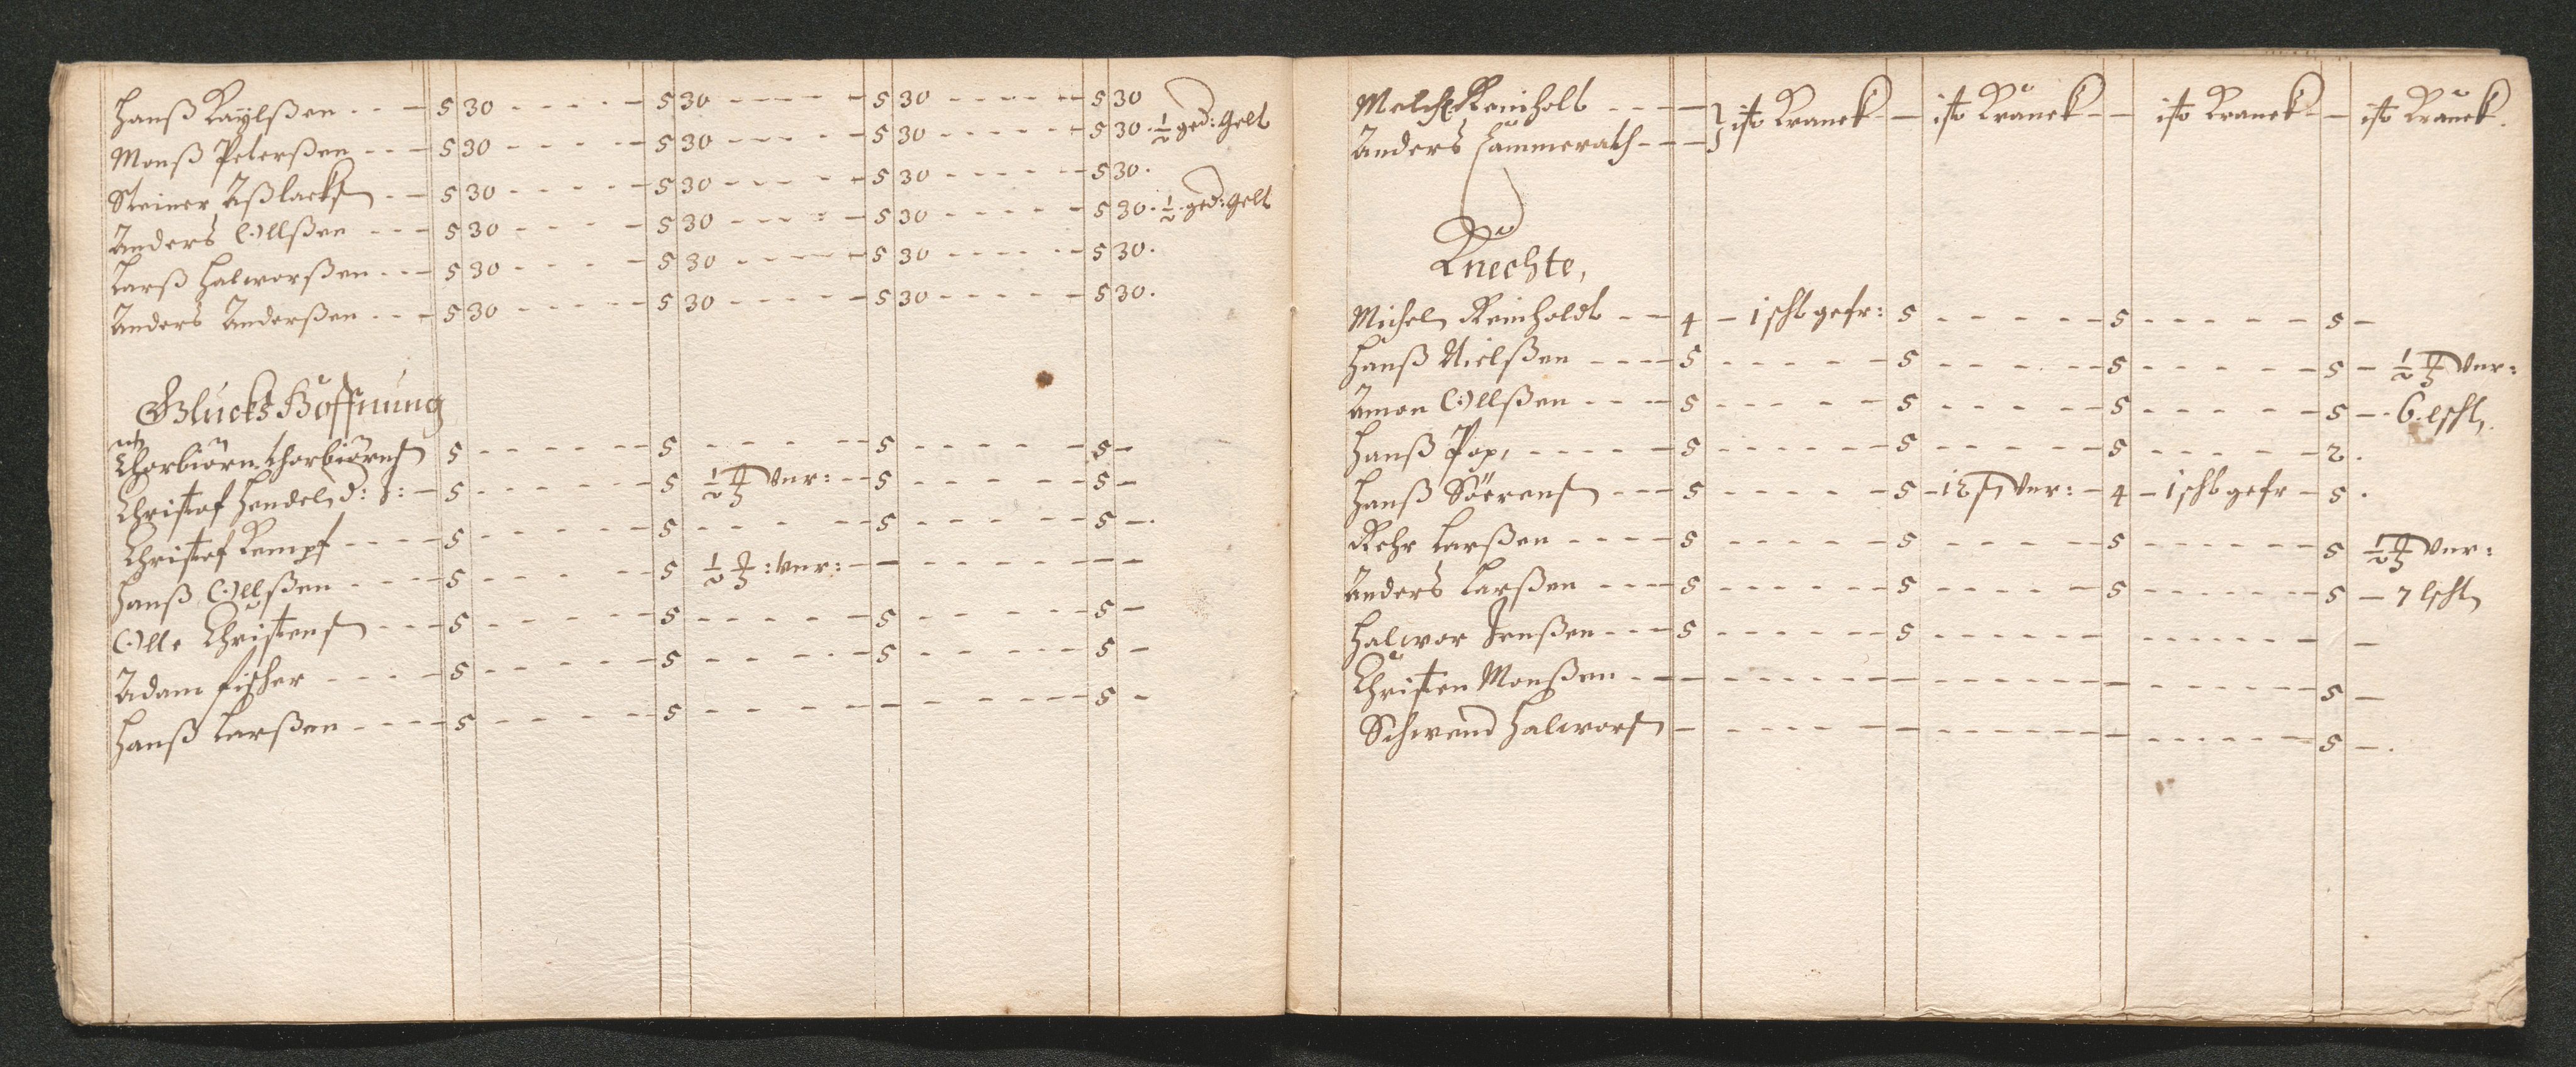 Hanß Kaÿlßen - - - 5 30 - - - - - 5 30 - - - - - 5 30 - - - - - 5 30
Monß Peterßen - - - 5 30 - - - - - 5 30 - - - - - 5 30 - - - - - 5 30 · ½ ged: gelt
Steiner Aßlacks - - 5 30 - - - - - 5 30 - - - - - 5 30 - - - - - 5 30 ·
Anders Ollßen - - - 5 30 - - - - - 5 30 - - - - - 5 30 - - - - - 5 30 · ½ · ged: gelt
Larß Halworßen - - - 5 30 - - - - - 5 30 - - - - - 5 30 - - - - - 5 30 ·
Anders Anderßen - - - 5 30 - - - - - 5 30 - - - - - 5 30 - - - - - 5 30 ·
Glucks Hoffnung
Thorbiörn Thorbiörns 5 - - - - - 5 - - - - - 5 - - - - - 5 -
Christof Hendel d: J: - 5 - - - - - 5 ½ Vnr: - - 5 - - - - - 5 -
Christof Kempf - - - - 5 - - - - - 5 - - - - - 5 - - - - - 5 - ·
Hanß Ollßen - - - - 5 - - - - - 5 ½ : Vnr: - - - - - - -
Olle Christens - - - 5 - - - - - 5 - - - - - 5 - - - - - 5 -
Adam Fischer - - - - 5 - - - - - 5 - - - - - 5 - - - - - 5 -
Hanß Larßen - - - - 5 - - - - - 5 - - - - - - - - - - - 5 -
Melch Reinholt - - - - } ist Kranck - - ist Kranck - - ist Kranck - - ist Kranck.
Anders Cammerath - - - }
Knechte,
Michel Reinholdt - - 4 - 1 schl gefr: 5 - - - - - 5 - - - - - 5 -
Hanß Nielßen - - - - 5 - - - - - 5 - - - - - 5 - - - - - 5 - ½ Vnr:
Amon Ollßen - - - - 5 - - - - - 5 - - - - - 5 - - - - - 5 - · 6 · lschl.
Hanß Pop, - - - - - 5 - - - - - 5 - - - - - 5 - - - - - 2 ·
Hanß Sörens - - - 5 - - - - - 5 - Vnr: - 4 - 1 schl gefr - 5 ·
Rehr Larßen - - - - 5 - - - - - 5 - - - - - 5 - - - - - 5 ½ Vnr:
Anders Larßen - - - - 5 - - - - - 5 - - - - - 5 - - - - - 5 - 7 lschl
Halwor Jenßen - - - 5 - - - - - 5 - - - - - - - - - - - -
Christen Monßen - - - - - - - - - - - - - - - - - - 5 -
Schwend Halwors - - - - - - - - - - - - - - - - - - 5 - ·